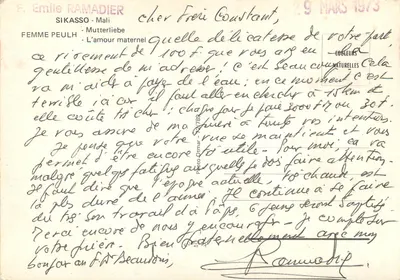 F. Emile RAMADIER
SIKASSO - Mali
Mutterliebe
FEMME PEULH
L'amour maternel
9 MARS 1973
cher Frère Constant,
quelle délicatesse de votre part
ce virement de 100F que vous avez eu la
gentillesse de m'adresser! c'est beaucoup cela
va m'aider à payer de l'eau; en ce moment c'est
terrible ici car il faut aller en chercher à 15 km et
elle coûte très cher: chaque jour je paie 3000 FM ou 30F.
Je vous assure de ma prière à toutes vos intentions.
Je pense que votre vue se maintient et vous
permet d'être encore très utile. Pour moi, ça va
malgré quelques fatigues auxquelles je dois faire attention.
Il faut dire que l'époque actuelle, très chaude, est
la plus dure de l'année. Je continue à faire
du son travail d'à
Merci encore de nous y encourager. Je compte sur
votre prière. Bien fraternellement avec mon
bonjour au F. Beaudoin,
Ramadier